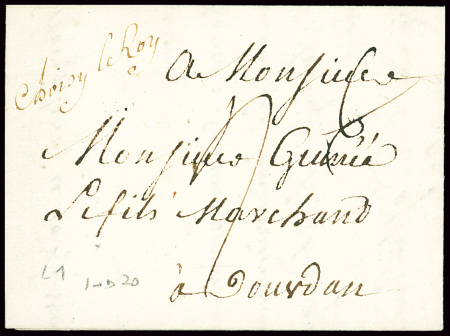 Choisy le Roy
A Monsieur
Monsieur Guinée
Le fils Marchand
à Dourdan
L1